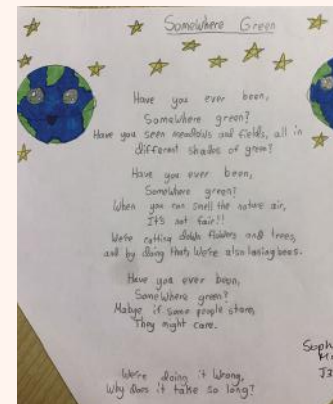 Somewhere Green
Have you ever been,
Somewhere green?
Have you seen meadows and fields, all in
different shades of green?
Have you ever been,
Somewhere green?
When you can smell the nature air,
It's not fair!!
We're cutting down flowers and trees,
and by doing that, We're also losing bees.
Have you ever been,
Somewhere green?
Mabye if some people stare,
They might care.
We're doing it Wrong,
Why does it take so long?
Soph